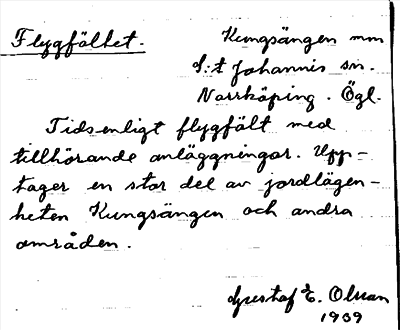 Flygfältet. Kungsängen mm
S:t Johannis sn.
Norrköping. Ögl.
Tidsenligt flygfält med
tillhörande anläggningar. Upp-
tager en stor del av jordlägen-
heten Kungsängen och andra
områden.
Gustaf E. Olsson
1939